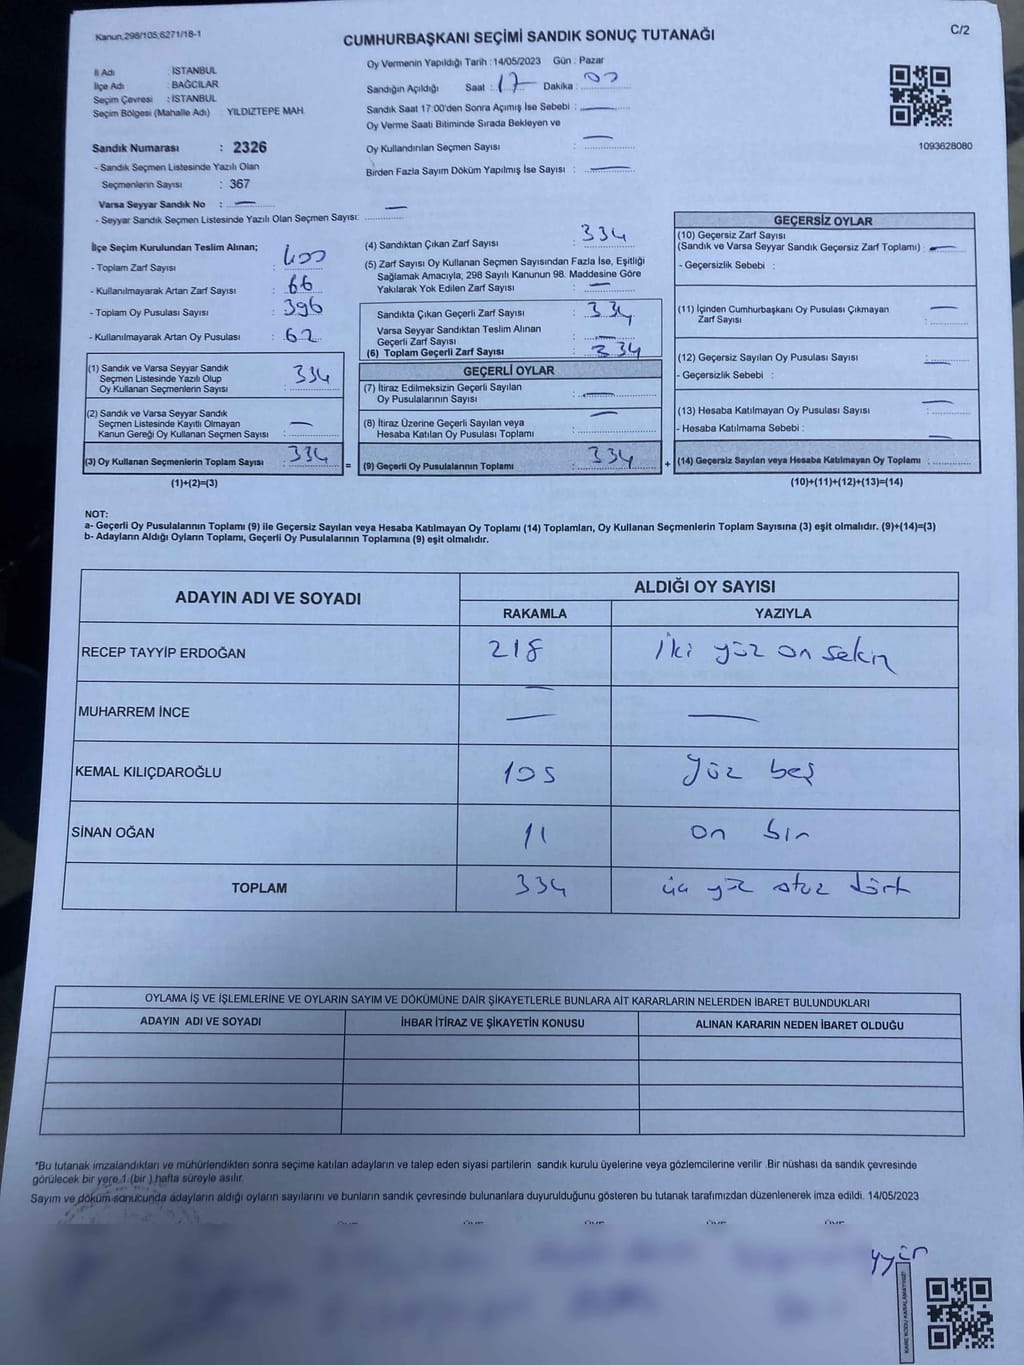 Kanun,298/105;6271/18-1
C/2
CUMHURBAŞKANI SEÇİMİ SANDIK SONUÇ TUTANAĞI
İl Adı : İSTANBUL
İlçe Adı : BAĞCILAR
Seçim Çevresi : İSTANBUL
Seçim Bölgesi (Mahalle Adı) : YILDIZTEPE MAH.
Oy Vermenin Yapıldığı Tarih :14/05/2023 Gün : Pazar
Sandığın Açıldığı Saat : 17 Dakika : 00
Sandık Saat 17:00'den Sonra Açımış İse Sebebi : —
Oy Verme Saati Bitiminde Sırada Bekleyen ve
Oy Kullandırılan Seçmen Sayısı : —
Birden Fazla Sayım Döküm Yapılmış İse Sayısı : —
1093628080
Sandık Numarası : 2326
- Sandık Seçmen Listesinde Yazılı Olan
Seçmenlerin Sayısı : 367
Varsa Seyyar Sandık No : —
- Seyyar Sandık Seçmen Listesinde Yazılı Olan Seçmen Sayısı: —
İlçe Seçim Kurulundan Teslim Alınan;
- Toplam Zarf Sayısı : 400
- Kullanılmayarak Artan Zarf Sayısı : 66
- Toplam Oy Pusulası Sayısı : 396
- Kullanılmayarak Artan Oy Pusulası : 62
(1) Sandık ve Varsa Seyyar Sandık
Seçmen Listesinde Yazılı Olup
Oy Kullanan Seçmenlerin Sayısı : 334
(2) Sandık ve Varsa Seyyar Sandık
Seçmen Listesinde Kayıtlı Olmayan
Kanun Gereği Oy Kullanan Seçmen Sayısı : —
(3) Oy Kullanan Seçmenlerin Toplam Sayısı : 334
(1)+(2)=(3)
(4) Sandıktan Çıkan Zarf Sayısı : 334
(5) Zarf Sayısı Oy Kullanan Seçmen Sayısından Fazla İse, Eşitliği
Sağlamak Amacıyla, 298 Sayılı Kanunun 98. Maddesine Göre
Yakılarak Yok Edilen Zarf Sayısı : —
Sandıkta Çıkan Geçerli Zarf Sayısı : 334
Varsa Seyyar Sandıktan Teslim Alınan
Geçerli Zarf Sayısı : —
(6) Toplam Geçerli Zarf Sayısı : 334
GEÇERLİ OYLAR
(7) İtiraz Edilmeksizin Geçerli Sayılan
Oy Pusulalarının Sayısı : —
(8) İtiraz Üzerine Geçerli Sayılan veya
Hesaba Katılan Oy Pusulası Toplamı : —
= (9) Geçerli Oy Pusulalarının Toplamı : 334 +
GEÇERSİZ OYLAR
(10) Geçersiz Zarf Sayısı
(Sandık ve Varsa Seyyar Sandık Geçersiz Zarf Toplamı) : —
- Geçersizlik Sebebi :
(11) İçinden Cumhurbaşkanı Oy Pusulası Çıkmayan
Zarf Sayısı : —
(12) Geçersiz Sayılan Oy Pusulası Sayısı : —
- Geçersizlik Sebebi :
(13) Hesaba Katılmayan Oy Pusulası Sayısı : —
- Hesaba Katılmama Sebebi :
(14) Geçersiz Sayılan veya Hesaba Katılmayan Oy Toplamı : —
(10)+(11)+(12)+(13)=(14)
NOT:
a- Geçerli Oy Pusulalarının Toplamı (9) ile Geçersiz Sayılan veya Hesaba Katılmayan Oy Toplamı (14) Toplamları, Oy Kullanan Seçmenlerin Toplam Sayısına (3) eşit olmalıdır. (9)+(14)=(3)
b- Adayların Aldığı Oyların Toplamı, Geçerli Oy Pusulalarının Toplamına (9) eşit olmalıdır.
ADAYIN ADI VE SOYADI ALDIĞI OY SAYISI
RAKAMLA YAZIYLA
RECEP TAYYİP ERDOĞAN 218 iki yüz on sekiz
MUHARREM İNCE — —
KEMAL KILIÇDAROĞLU 105 yüz beş
SİNAN OĞAN 11 on bir
TOPLAM 334 üç yüz otuz dört
OYLAMA İŞ VE İŞLEMLERİNE VE OYLARIN SAYIM VE DÖKÜMÜNE DAİR ŞİKAYETLERLE BUNLARA AİT KARARLARIN NELERDEN İBARET BULUNDUKLARI
ADAYIN ADI VE SOYADI İHBAR İTİRAZ VE ŞİKAYETİN KONUSU ALINAN KARARIN NEDEN İBARET OLDUĞU
*Bu tutanak imzalandıktan ve mühürlendikten sonra seçime katılan adayların ve talep eden siyasi partilerin sandık kurulu üyelerine veya gözlemcilerine verilir .Bir nüshası da sandık çevresinde
görülecek bir yere 1 (bir ) hafta süreyle asılır.
Sayım ve döküm sonucunda adayların aldığı oyların sayılarını ve bunların sandık çevresinde bulunanlara duyurulduğunu gösteren bu tutanak tarafımızdan düzenlenerek imza edildi. 14/05/2023
ÜYE ÜYE ÜYE ÜYE ÜYE
KARE KODU KARALAMAYINIZ!